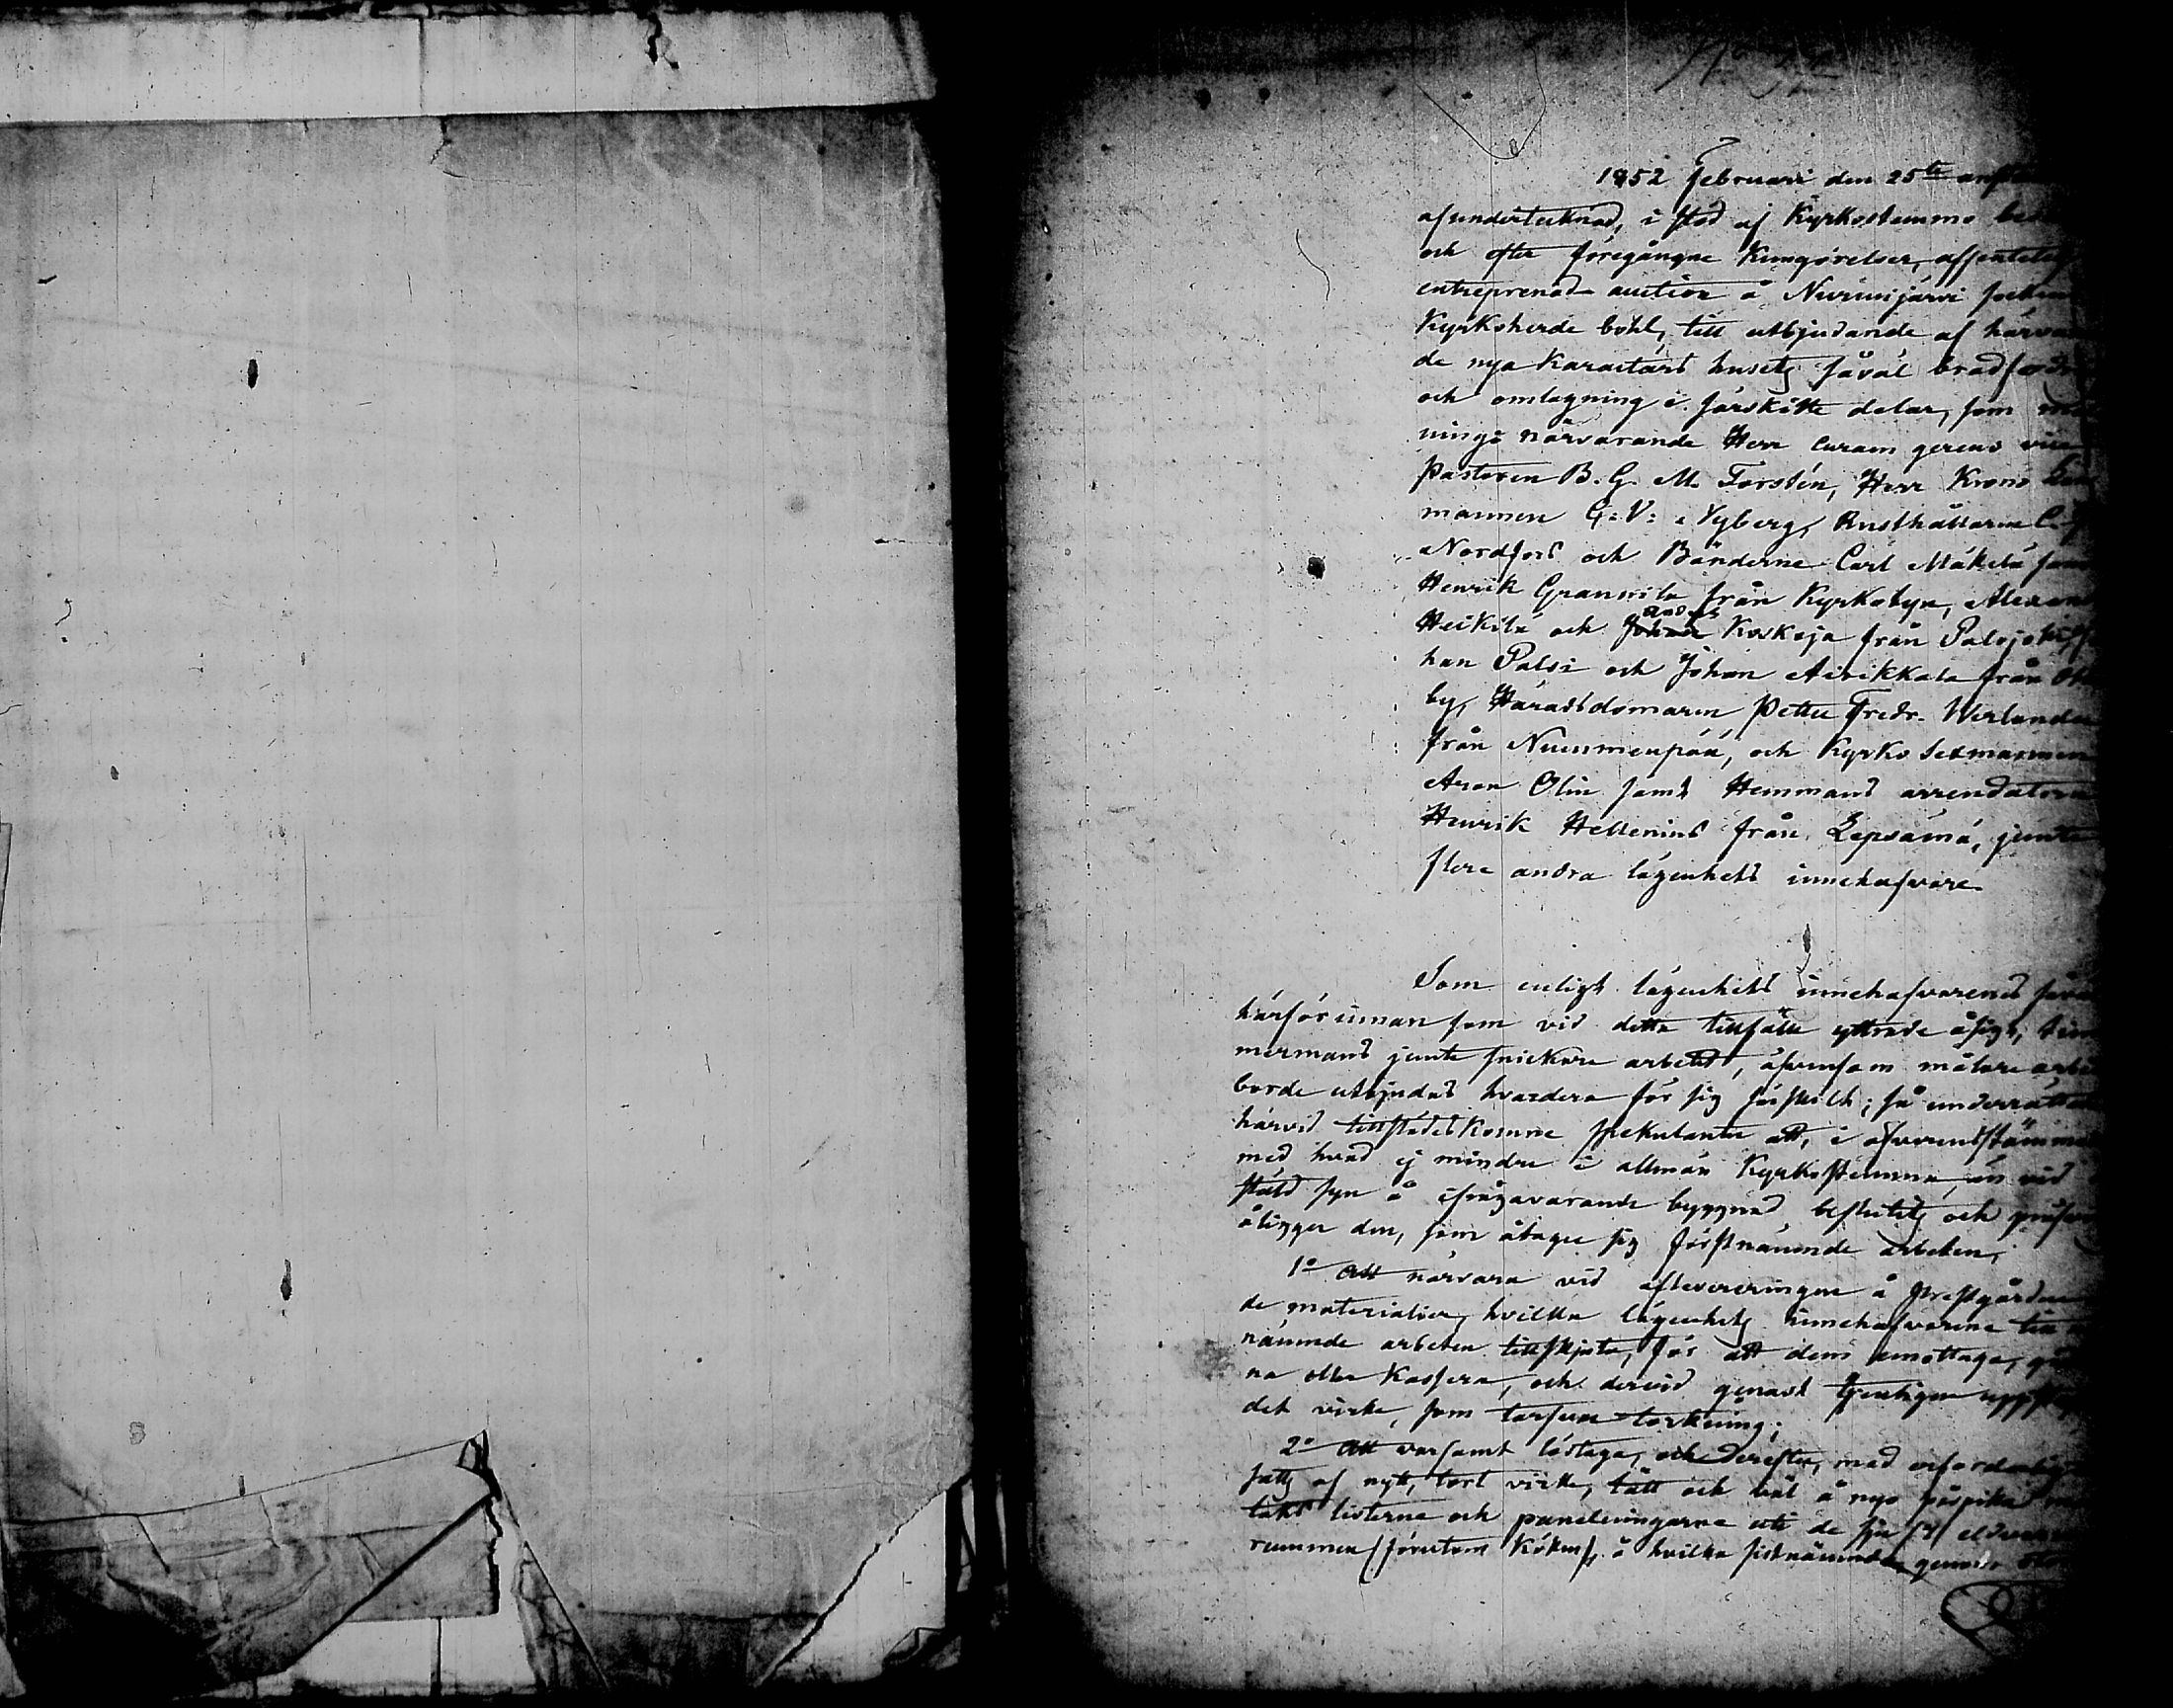 1852 Februari den 25te
af undertecknad, i stöd af Kyrkostemmo
och efter föregångne Kungörelser, offentelig
entreprenad auction å Nurmijärvi
Kyrkoherde bohl, till utbjudande af härva
de nya Karactärs husets såväl brädfodr
och omlagning i särskilte delar, som mål
nings närvarande Herr curam gerens vice
Pastoren B. G. M. Forstén, Herr Krono Läns
mannen G: V: Nyberg, Rusthållaren C.
Nordfors och Bönderne Carl Mäkelä samt
Henrik Grannila från Kyrkobyn, Alexand
Heikilä och Anders Koskoja från Palojoki,
han Palsi och Johan Airikkala från
by, Häradsdomaren Petter Fredr. Werlander
från Nummenpää, och Kyrko Sexmannen
Aron Olin samt Hemmans arrendatoren
Henrik Hellenius från Lepsämä, jemte
flere andra lägenhets innehafvare
Som enligt lägenhets innehafvarenes
härförinnan som vid detta tillfälle yttrade åsigt, tim
mermans jemte snickare arbetet, äfvensom målare arbe
borde utbjudas hvardera för sig särskilt; så underrättade
härvid tillstädeskomne spekulanter att, i öfverensstämmel
med hvad ej mindre i allmän Kyrkostemma, än vid
ståld syn å ifrågavarande byggnad beslutits och
åligger den, som åtager sig förstnämnde arbeten,
1o Att närvara vid aflevereringen å Prestgården
de materialier, hvilka lägenhets innehafvarene till
nämnde arbeten tillskjuta, för att dem emottaga,
na eller Kassera, och dervid genast tjenligen upp
det virke, som tarfvar torkning;
2o Att varsamt löstaga, och derefter, med erforderlig
sats af nytt, tort virke, tätt och väl å nyo påspika
taks listerne och panelningarne uti de sju /7/ eldva
rummen /:förutom Köket:/ å hvilka sistnämnde genom